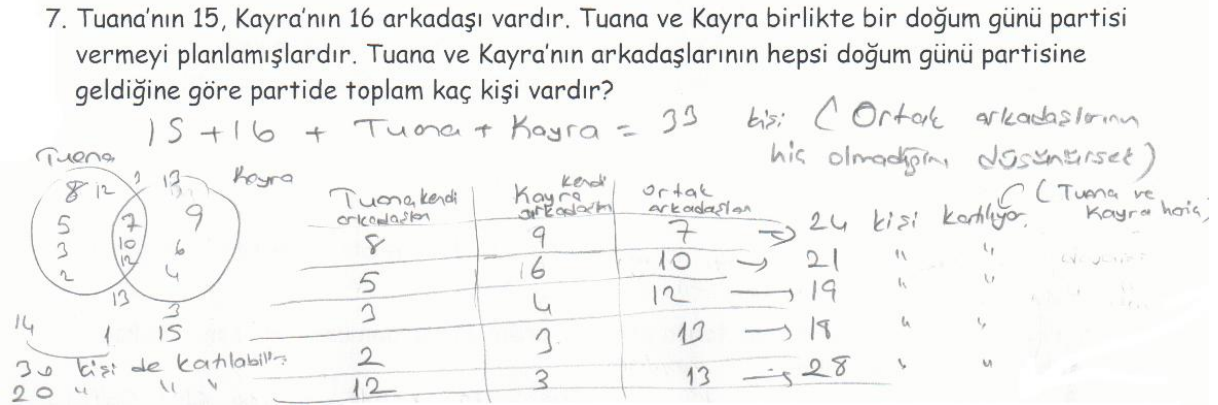 7. Tuana'nın 15, Kayra'nın 16 arkadaşı vardır. Tuana ve Kayra birlikte bir doğum günü partisi
vermeyi planlamışlardır. Tuana ve Kayra'nın arkadaşlarının hepsi doğum günü partisine
geldiğine göre partide toplam kaç kişi vardır?
15 + 16 + Tuana + Kayra = 33 kişi ( Ortak arkadaşlarının
hiç olmadığını düşünürsek )
Tuana Kayra
8 12 3 13
5 7 9
3 10 6
2 12 4
13 3
14 1 15
30 kişi de katılabilir
20 " " "
Tuana kendi arkadaşları Kayra kendi arkadaşları ortak arkadaşları
8 9 7 → 24 kişi katılıyor. ( Tuana ve Kayra hariç )
5 16 10 → 21 " "
3 4 12 → 19 " "
2 3 13 → 18 " "
12 3 13 → 28 " "